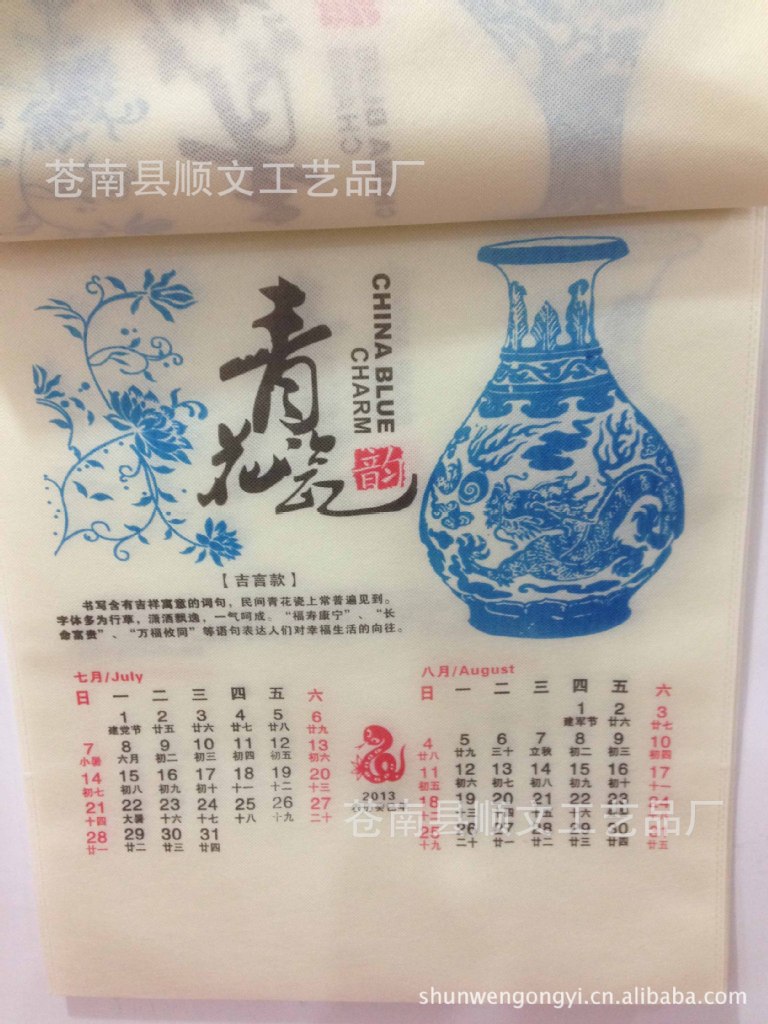 苍南县顺文工艺品厂
青花瓷
CHINA BLUE
CHARM
韵
【吉言款】
书写含有吉祥寓意的词句，民间青花瓷上常普遍见到。
字体多为行草，潇洒飘逸，一气呵成。“福寿康宁”、“长
命富贵”、“万福攸同”等语句表达人们对幸福生活的向往。
七月/July
日 一 二 三 四 五 六
1 2 3 4 5 6
建党节 廿五 廿六 廿七 廿八 廿九
7 8 9 10 11 12 13
小暑 六月 初二 初三 初四 初五 初六
14 15 16 17 18 19 20
初七 初八 初九 初十 十一 十二 十三
21 22 23 24 25 26 27
十四 大暑 十六 十七 十八 十九 二十
28 29 30 31
廿一 廿二 廿三 廿四
2013
八月/August
日 一 二 三 四 五 六
1 2 3
建军节 廿六 廿七
4 5 6 7 8 9 10
廿八 廿九 三十 立秋 初二 初三 初四
11 12 13 14 15 16 17
初五 初六 初七 初八 初九 初十 十一
18 19 20 21 22 23 24
十二 十三 十四 十五 十六
25 26 27 28 29 30 31
十九 二十 廿一 廿二 廿三 廿四 廿五
苍南县顺文工艺品厂
shunwengongyi.cn.alibaba.com